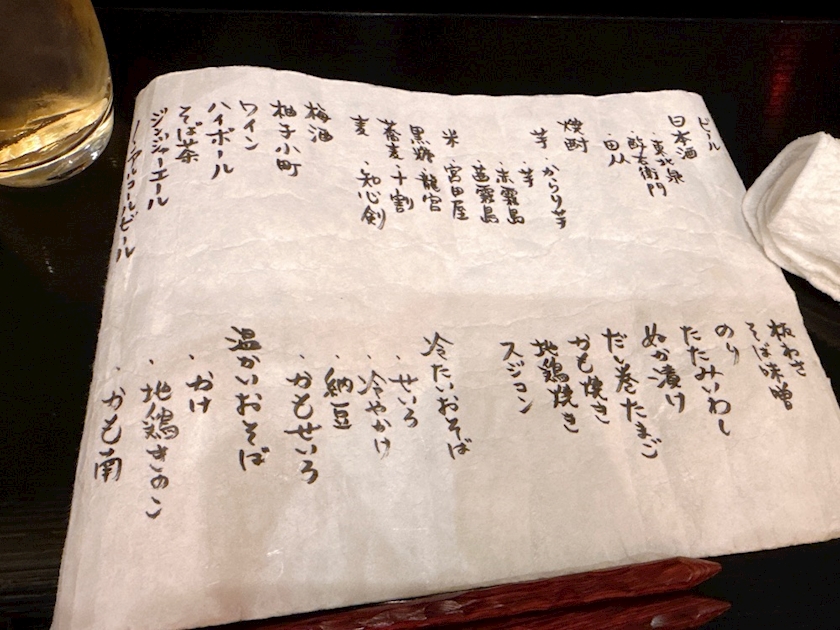 ビール
日本酒
・東北泉
・酔右衛門
・田从
焼酎
芋・からり芋
・芋
・赤霧島
・茜霧島
米・宮田屋
黒糖 龍宮
蕎麦・十割
麦・知心剣
梅酒
柚子小町
ワイン
ハイボール
そば茶
ジンジャーエール
ノンアルコールビール
板わさ
そば味噌
のり
たたみいわし
ぬか漬け
だし巻たまご
かも焼き
地鶏焼き
スジコン
冷たいおそば
・せいろ
・冷やかけ
・納豆
・かもせいろ
温かいおそば
・かけ
・地鶏きのこ
・かも南